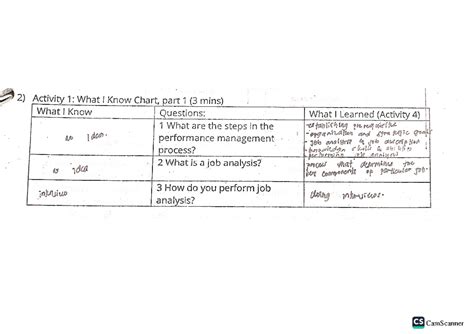 2) Activity 1: What I Know Chart, part 1 (3 mins)
What I Know
Questions:
What I Learned (Activity 4)
no idea.
1 What are the steps in the
performance management
process?
-establishing prerequisite
-organization and strategic goals
- job analysis & job description
- knowledge skills & abilities
performing job analysis
no idea
2 What is a job analysis?
process that determine the
key components of particular job.
interview
3 How do you perform job
analysis?
doing interviews.
CS CamScanner